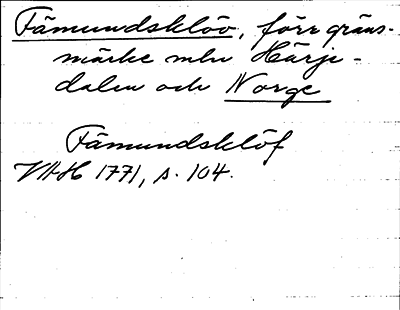 Fämundsklöv, förr gräns-
märke mln Härje-
dalen och Norge
Fämundsklöf
VAH 1771, s. 104.